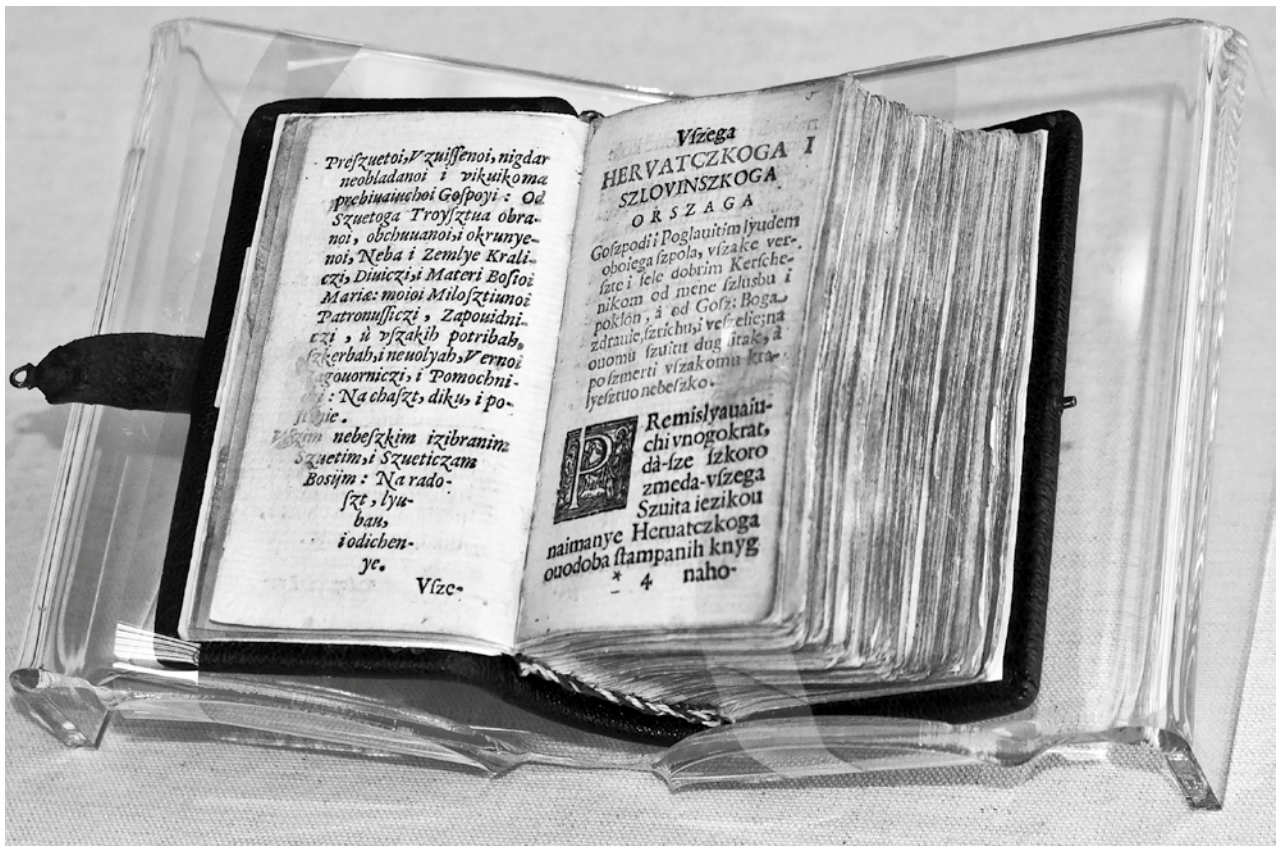 Preſzuetoi, Vzuiſſenoi, nigdar
neobladanoi i vikuikoma
prebiuaiuchoi Goſpoyi : Od
Szuetoga Troyſztua obra-
noi, obchuuanoi,i okrunye-
noi, Neba i Zemlye Krali-
czi, Diuiczi,i Materi Boſioi
Mariæ: moioi Miloſztiunoi
Patronuſſiczi , Zapouidni-
czi , ù vſzakih potribah,
ſzkerbah,i neuolyah,Vernoi
i Pomochni-
: Na chaſzt, diku, i po-
nebeſzkim izibranim
Szuetim,i Szueticzam
Bosijm : Na rado-
ſzt , lyu-
bau,
i odichen-
ye.
Vſze-
Vſzega
HERVATCZKOGA I
SZLOVINSZKOGA
ORSZAGA
Goſzpodi i Poglauitim lyudem
oboiega ſzpola, vſzake ver-
ſzte i ſele dobrim Kerſche-
nikom od mene ſzlusbu i
poklon , à od Goſz: Boga
zdrauie,ſzrichu,i veſzelie;na
ouomu ſzuitu dug à
po ſzmerti vſzakomu kra-
lyeſztuo nebeſzko.
PRemislyauaiu-
chi vnogokrat,
dà-ſze ſzkoro
zmeda-vſzega
Szuita iezikou
naimanye Heruatczkoga
ouodoba ſtampanih knyg
* 4 naho-